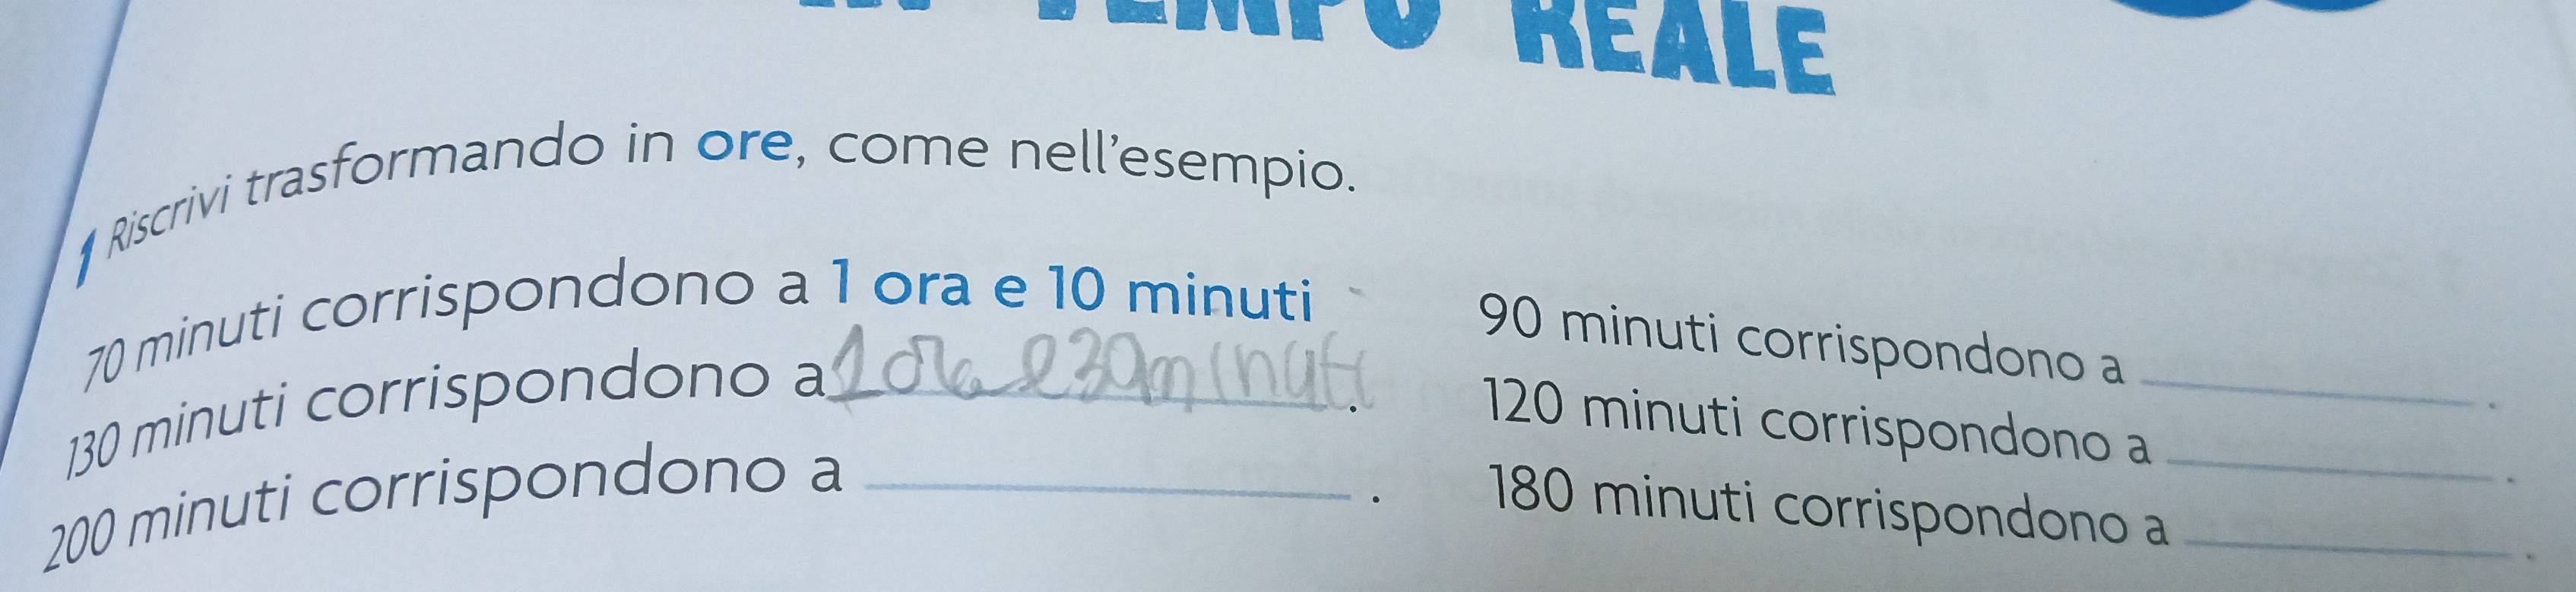 TEMPO REALE
1 Riscrivi trasformando in ore, come nell'esempio.
70 minuti corrispondono a 1 ora e 10 minuti
130 minuti corrispondono a 1 ora e 30 minuti.
200 minuti corrispondono a ____________ .
90 minuti corrispondono a ____________ .
120 minuti corrispondono a ____________ .
180 minuti corrispondono a ____________ .